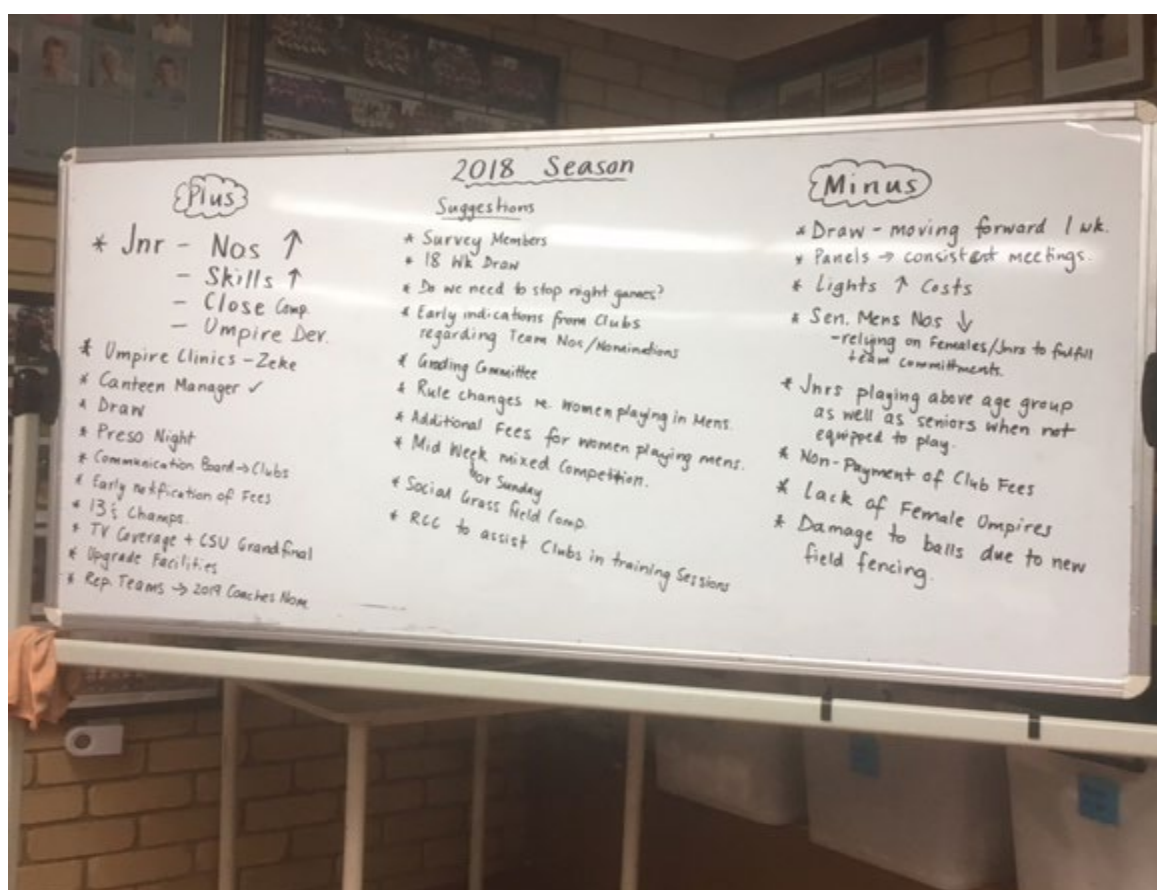 2018 Season
Plus
* Jnr - Nos ↑
- Skills ↑
- Close Comp.
- Umpire Dev.
* Umpire Clinics - Zeke
* Canteen Manager ✓
* Draw
* Preso Night
* Communication Board → Clubs
* Early notification of Fees
* 13's Champs.
* TV Coverage + CSU Grandfinal
* Upgrade Facilities
* Rep. Teams → 2019 Coaches Nom
Suggestions
* Survey Members
* 18 Wk Draw
* Do we need to stop night games?
* Early indications from Clubs
regarding Team Nos/Nominations
* Grading Committee
* Rule changes re. Women playing in Mens.
* Additional Fees for women playing mens.
* Mid Week mixed Competition.
or Sunday
* Social Grass field Comp.
* RCC to assist Clubs in training Sessions
Minus
* Draw - moving forward 1 wk.
* Panels → consistent meetings.
* Lights ↑ Costs
* Sen. Mens Nos ↓
- relying on Females/Jnrs to fulfill
team committments.
* Jnrs playing above age group
as well as seniors when not
equipped to play.
* Non-Payment of Club Fees
* Lack of Female Umpires
* Damage to balls due to new
field fencing.